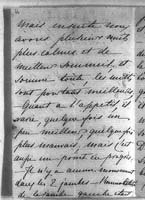 mais ensuite nous
avons plusieurs nuits
plus calmes et de
meilleur sommeil, et
somme toute les nuits
sont pourtant meilleures
- Quant à l'appétit il
varie, quelquefois un
peu meilleur, quelquefois
plus mauvais, mais c'est
aussi un point en progrès.
- Il n'y a aucun mouvement
dans les 2 jambes - Immobilité
de la jambe gauche et